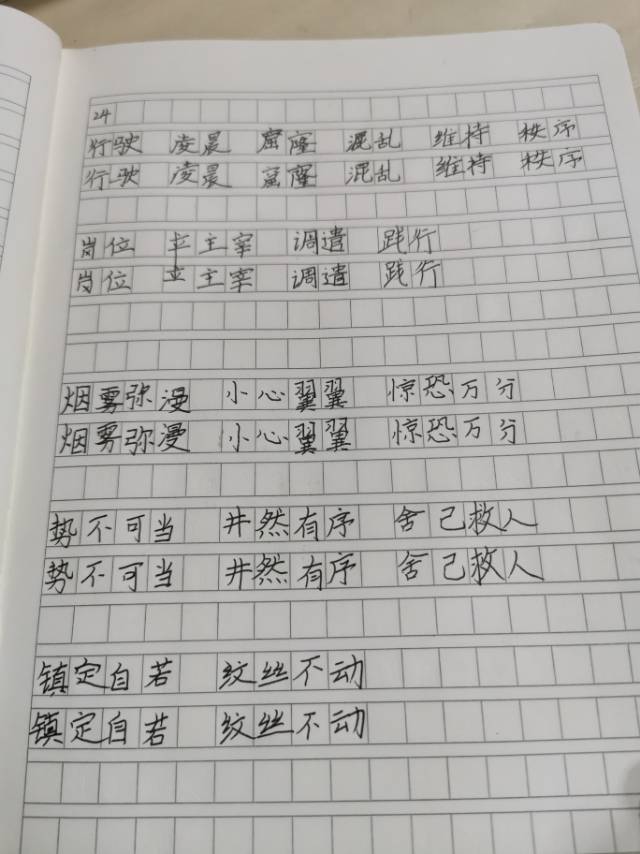 24
行驶 凌晨 窟窿 混乱 维持 秩序
行驶 凌晨 窟窿 混乱 维持 秩序
岗位 主宰 调遣 践行
岗位 主宰 调遣 践行
烟雾弥漫 小心翼翼 惊恐万分
烟雾弥漫 小心翼翼 惊恐万分
势不可当 井然有序 舍己救人
势不可当 井然有序 舍己救人
镇定自若 纹丝不动
镇定自若 纹丝不动